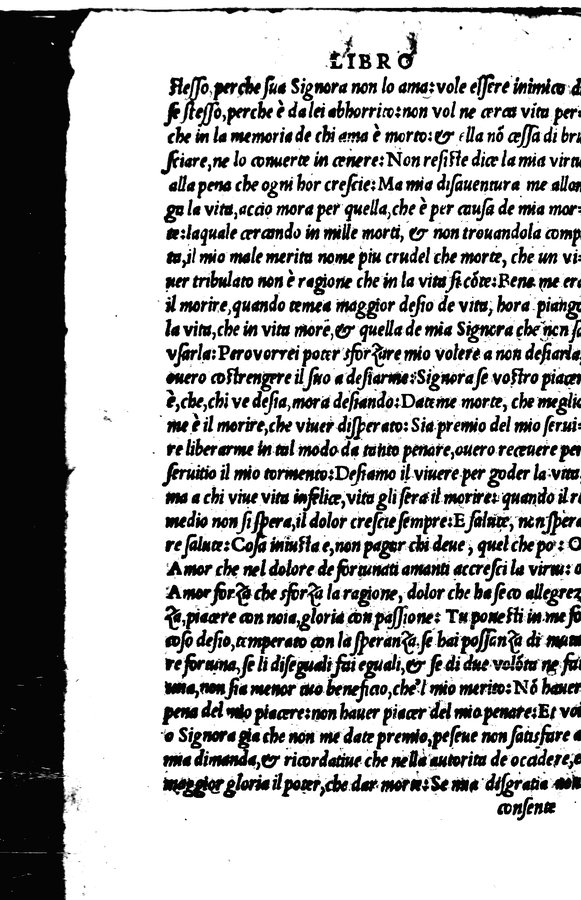 LIBRO
stesso, perche sua Signora non lo ama: vole essere inimico d
se stesso, perche è da lei abhorrito: non vol ne cerca vita per-
che in la memoria de chi ama è morto: & ella nõ cessa di bru
sciare, ne lo conuerte in cenere: Non resiste dice la mia virtu
alla pena che ogni hor crescie: Ma mia disauentura me allon
ga la vita, accio mora per quella, che è per causa de mia mor-
te: laquale cercando in mille morti, & non trouandola comp
ta, il mio male merita nome piu crudel che morte, che un vi-
uer tribulato non è ragione che in la vita si cõte: Bena me era
il morire, quando temea maggior desio de vita, hora piango
la vita, che in vita more, & quella de mia Signora che non sa
vsarla: Pero vorrei poter sforzare mio volere a non desiarla,
ouero costrengere il suo a desiarme: Signora se vostro piacer
è, che, chi ve desia, mora desiando: Dateme morte, che meglio
me è il morire, che viuer disperato: Sia premio del mio serui-
re liberarme in tal modo da tanto penare, ouero receuere per
seruitio il mio tormento: Desiamo il viuere per goder la vita,
ma a chi viue vita infelice, vita gli sera il morire: quando il re
medio non si spera, il dolor crescie sempre: E salute, non spera
re salute: Cosa iniusta e, non pagar chi deue, quel che po: O
Amor che nel dolore de fortunati amanti accresci la virtu: o
Amor forza che sforza la ragione, dolor che ha seco allegrez
za, piacere con noia, gloria con passione: Tu ponesti in me fo
coso desio, temperato con la speranza, se hai possanza di muta
re fortuna, se li diseguali fai eguali, & se di due volõta ne fai
una, non sia menor tuo beneficio, che'l mio merito: Nõ hauer
pena del mio piacere: non hauer piacer del mio penare: Et voi
o Signora gia che non me date premio, peseue non satisfare a
mia dimanda, & ricordatiue che nella autorita de occidere, e
maggior gloria il poter, che dar morte: Se mia disgratia non
consente